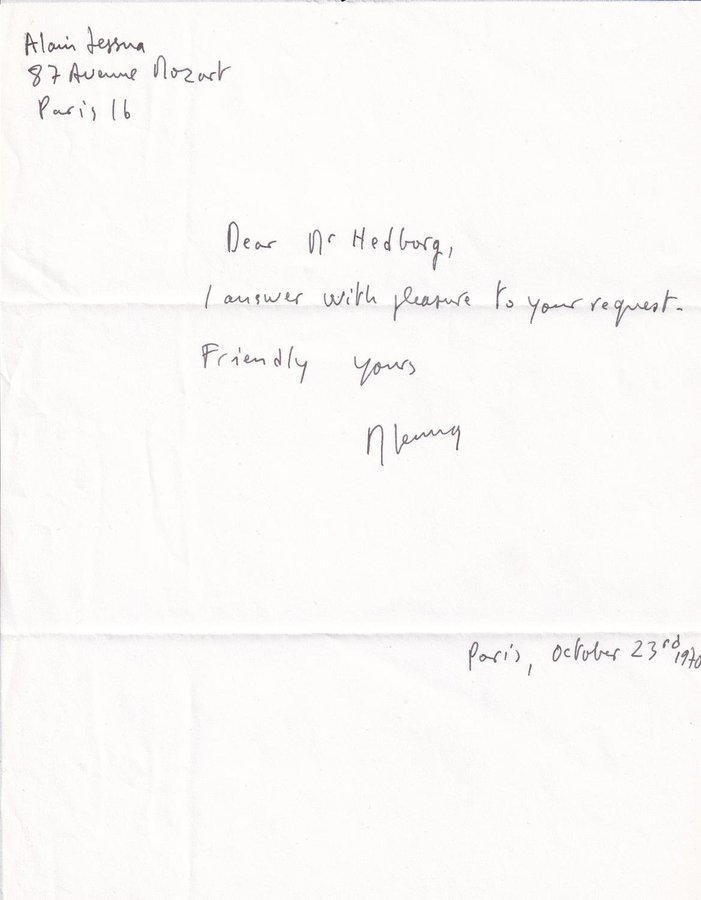 Alain Jessua
87 Avenue Mozart
Paris 16
Dear Mr Hedborg,
I answer with pleasure to your request.
Friendly yours
AJessua
Paris, October 23rd 1970